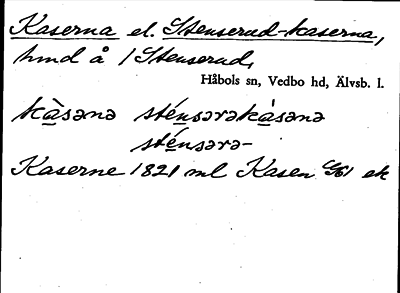 Kaserna el. Stenserud-kaserna,
hmd å 1 Stenserud,
Håbols sn, Vedbo hd, Älvsb. l.
kàsənə sténsərəkásənə
sténsərə-
Kaserne 1821 ml Kasen ek